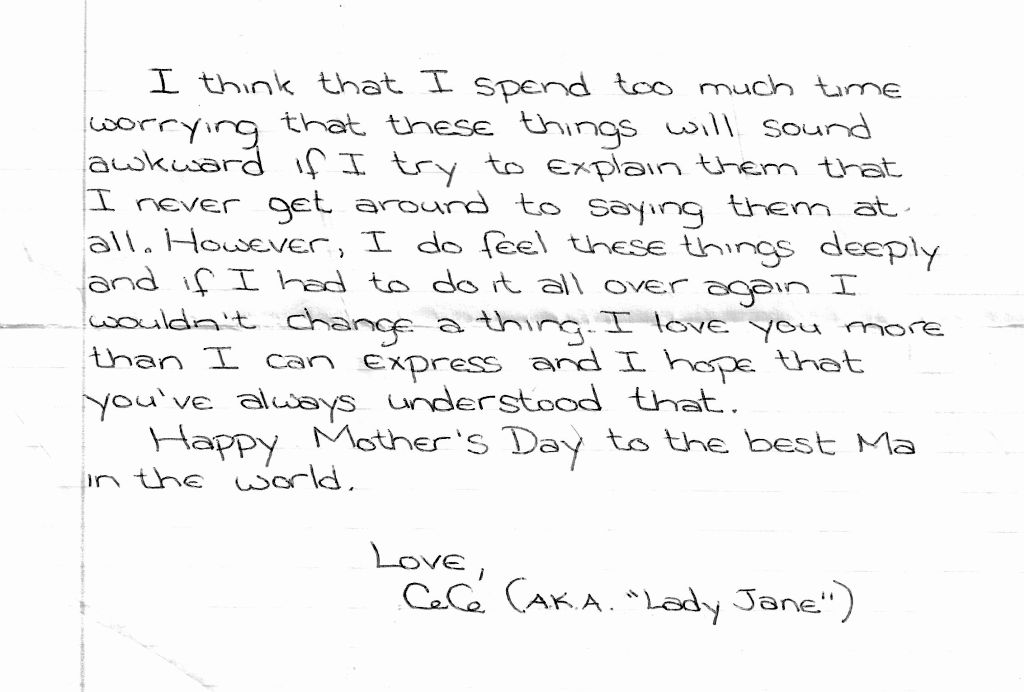 I think that I spend too much time
worrying that these things will sound
awkward if I try to explain them that
I never get around to saying them at
all. However, I do feel these things deeply
and if I had to do it all over again I
wouldn't change a thing. I love you more
than I can express and I hope that
you've always understood that.
Happy Mother's Day to the best Ma
in the world.
Love,
CeCe (AKA. "Lady Jane")